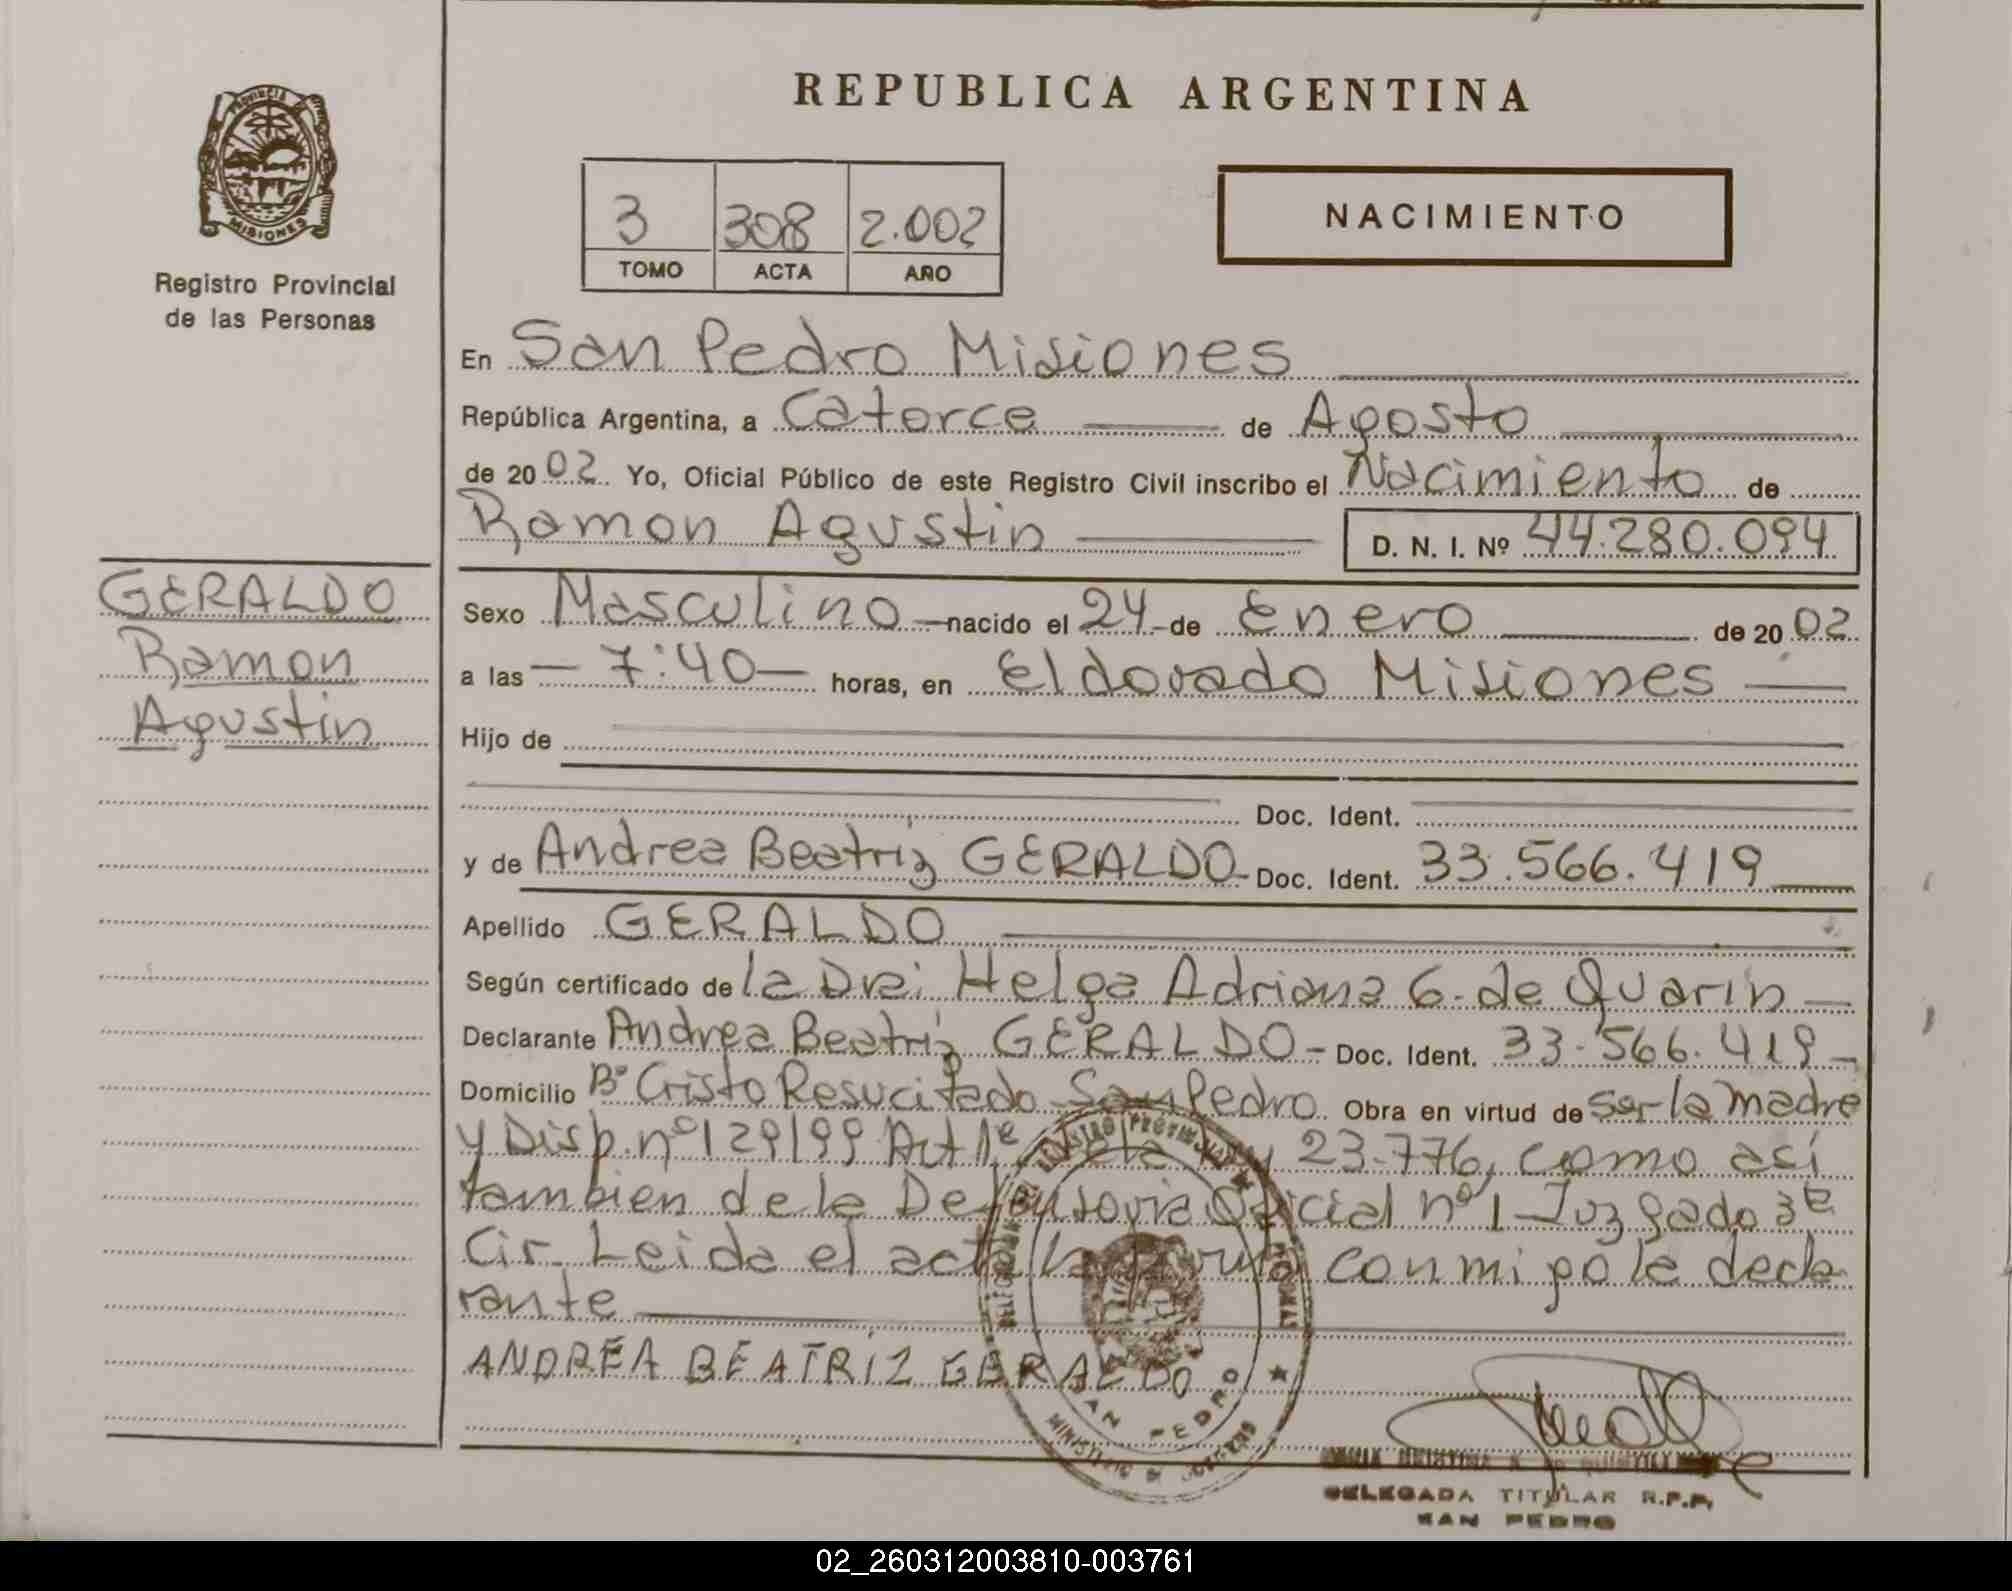 REPUBLICA ARGENTINA
PROVINCIA
MISIONES
Registro Provincial
de las Personas
3 308 2.002
TOMO ACTA AÑO
NACIMIENTO
En San Pedro Misiones
República Argentina, a Catorce de Agosto
de 20 02 Yo, Oficial Público de este Registro Civil inscribo el Nacimiento de
Ramon Agustin D. N. I. Nº 44.280.094
GERALDO
Ramon
Agustin
Sexo Masculino nacido el 24 de Enero de 20 02
a las 7:40 horas, en Eldorado Misiones
Hijo de
Doc. Ident.
y de Andrea Beatriz GERALDO Doc. Ident. 33.566.419
Apellido GERALDO
Según certificado de la Dra: Helga Adriana G. de Quarin
Declarante Andrea Beatriz GERALDO - Doc. Ident. 33.566.419
Domicilio Bº Cristo Resucitado San Pedro Obra en virtud de ser la madre
y Disp. nº 129/99 Art 1 23.776, como asi
tambien de la Defensoria Oficial nº 1 Juzgado 3ra
Cir. Leida el acta la firma conmigo la decla
rante
ANDREA BEATRIZ GERALDO
SAN PEDRO
MINISTERIO DE GOBIERNO
DELEGADA TITULAR R.P.P.
SAN PEDRO
02_260312003810-003761